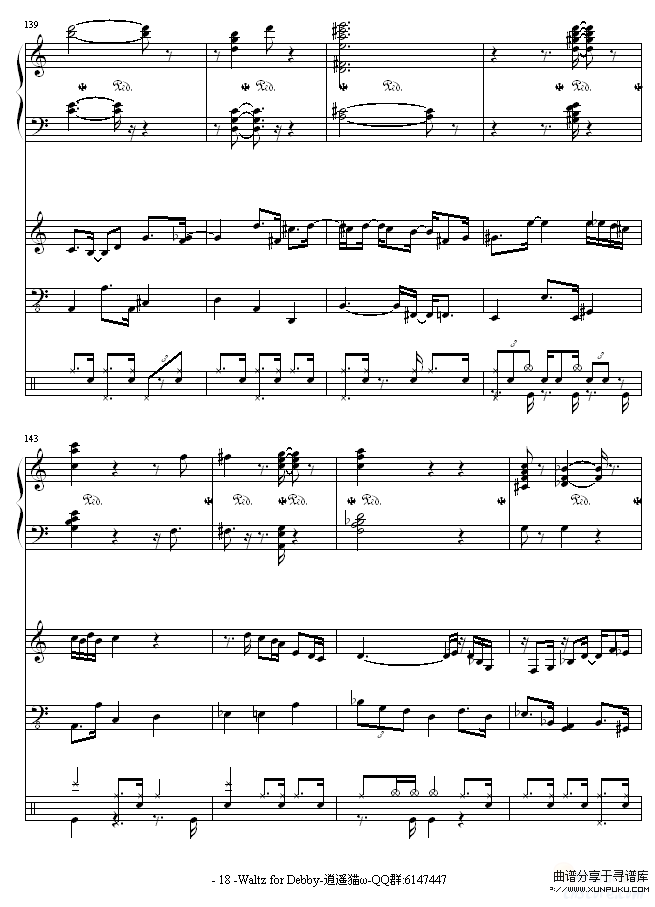 139
Ped. Ped. Ped. Ped.
143
Ped. Ped. Ped. Ped. Ped.
- 18 -Waltz for Debby-逍遥猫ω-QQ群:6147447
曲谱分享于寻谱库
WWW.XUNPUKU.COM